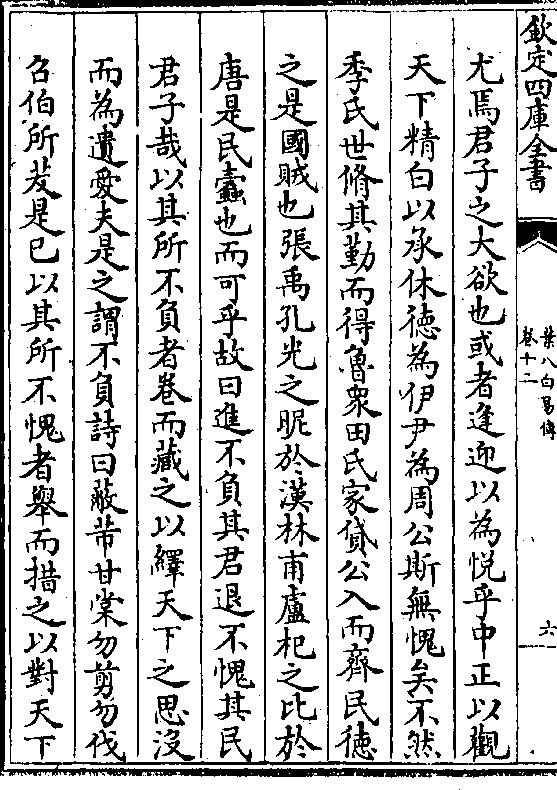 欽定四庫全書
葉八白易傳
卷十二
六
尤焉君子之大欲也或者逢迎以為悦乎中正以觀
天下精白以承休徳為伊尹為周公斯無愧矣不然
季氏世脩其勤而得魯衆田氏家貸公入而齊民徳
之是國賊也張禹孔光之昵於漢林甫盧杞之比於
唐是民蠧也而可乎故曰進不負其君退不愧其民
君子哉以其所不負者卷而藏之以繹天下之思沒
而為遺愛夫是之謂不負詩曰蔽芾甘棠勿剪勿伐
召伯所茇是已以其所不愧者舉而措之以對天下